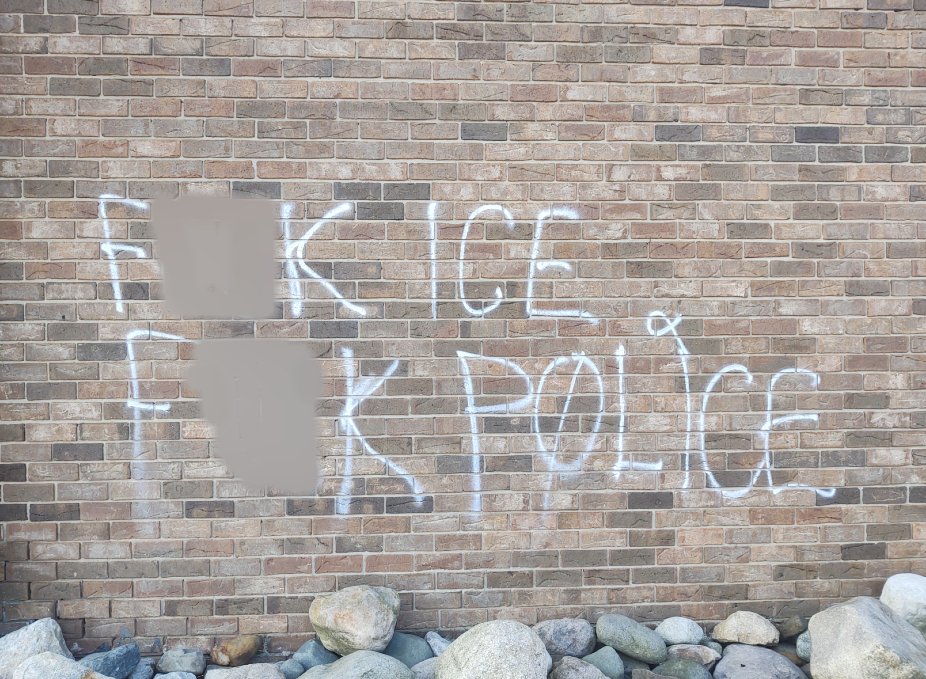 F K ICE
F K POLICE